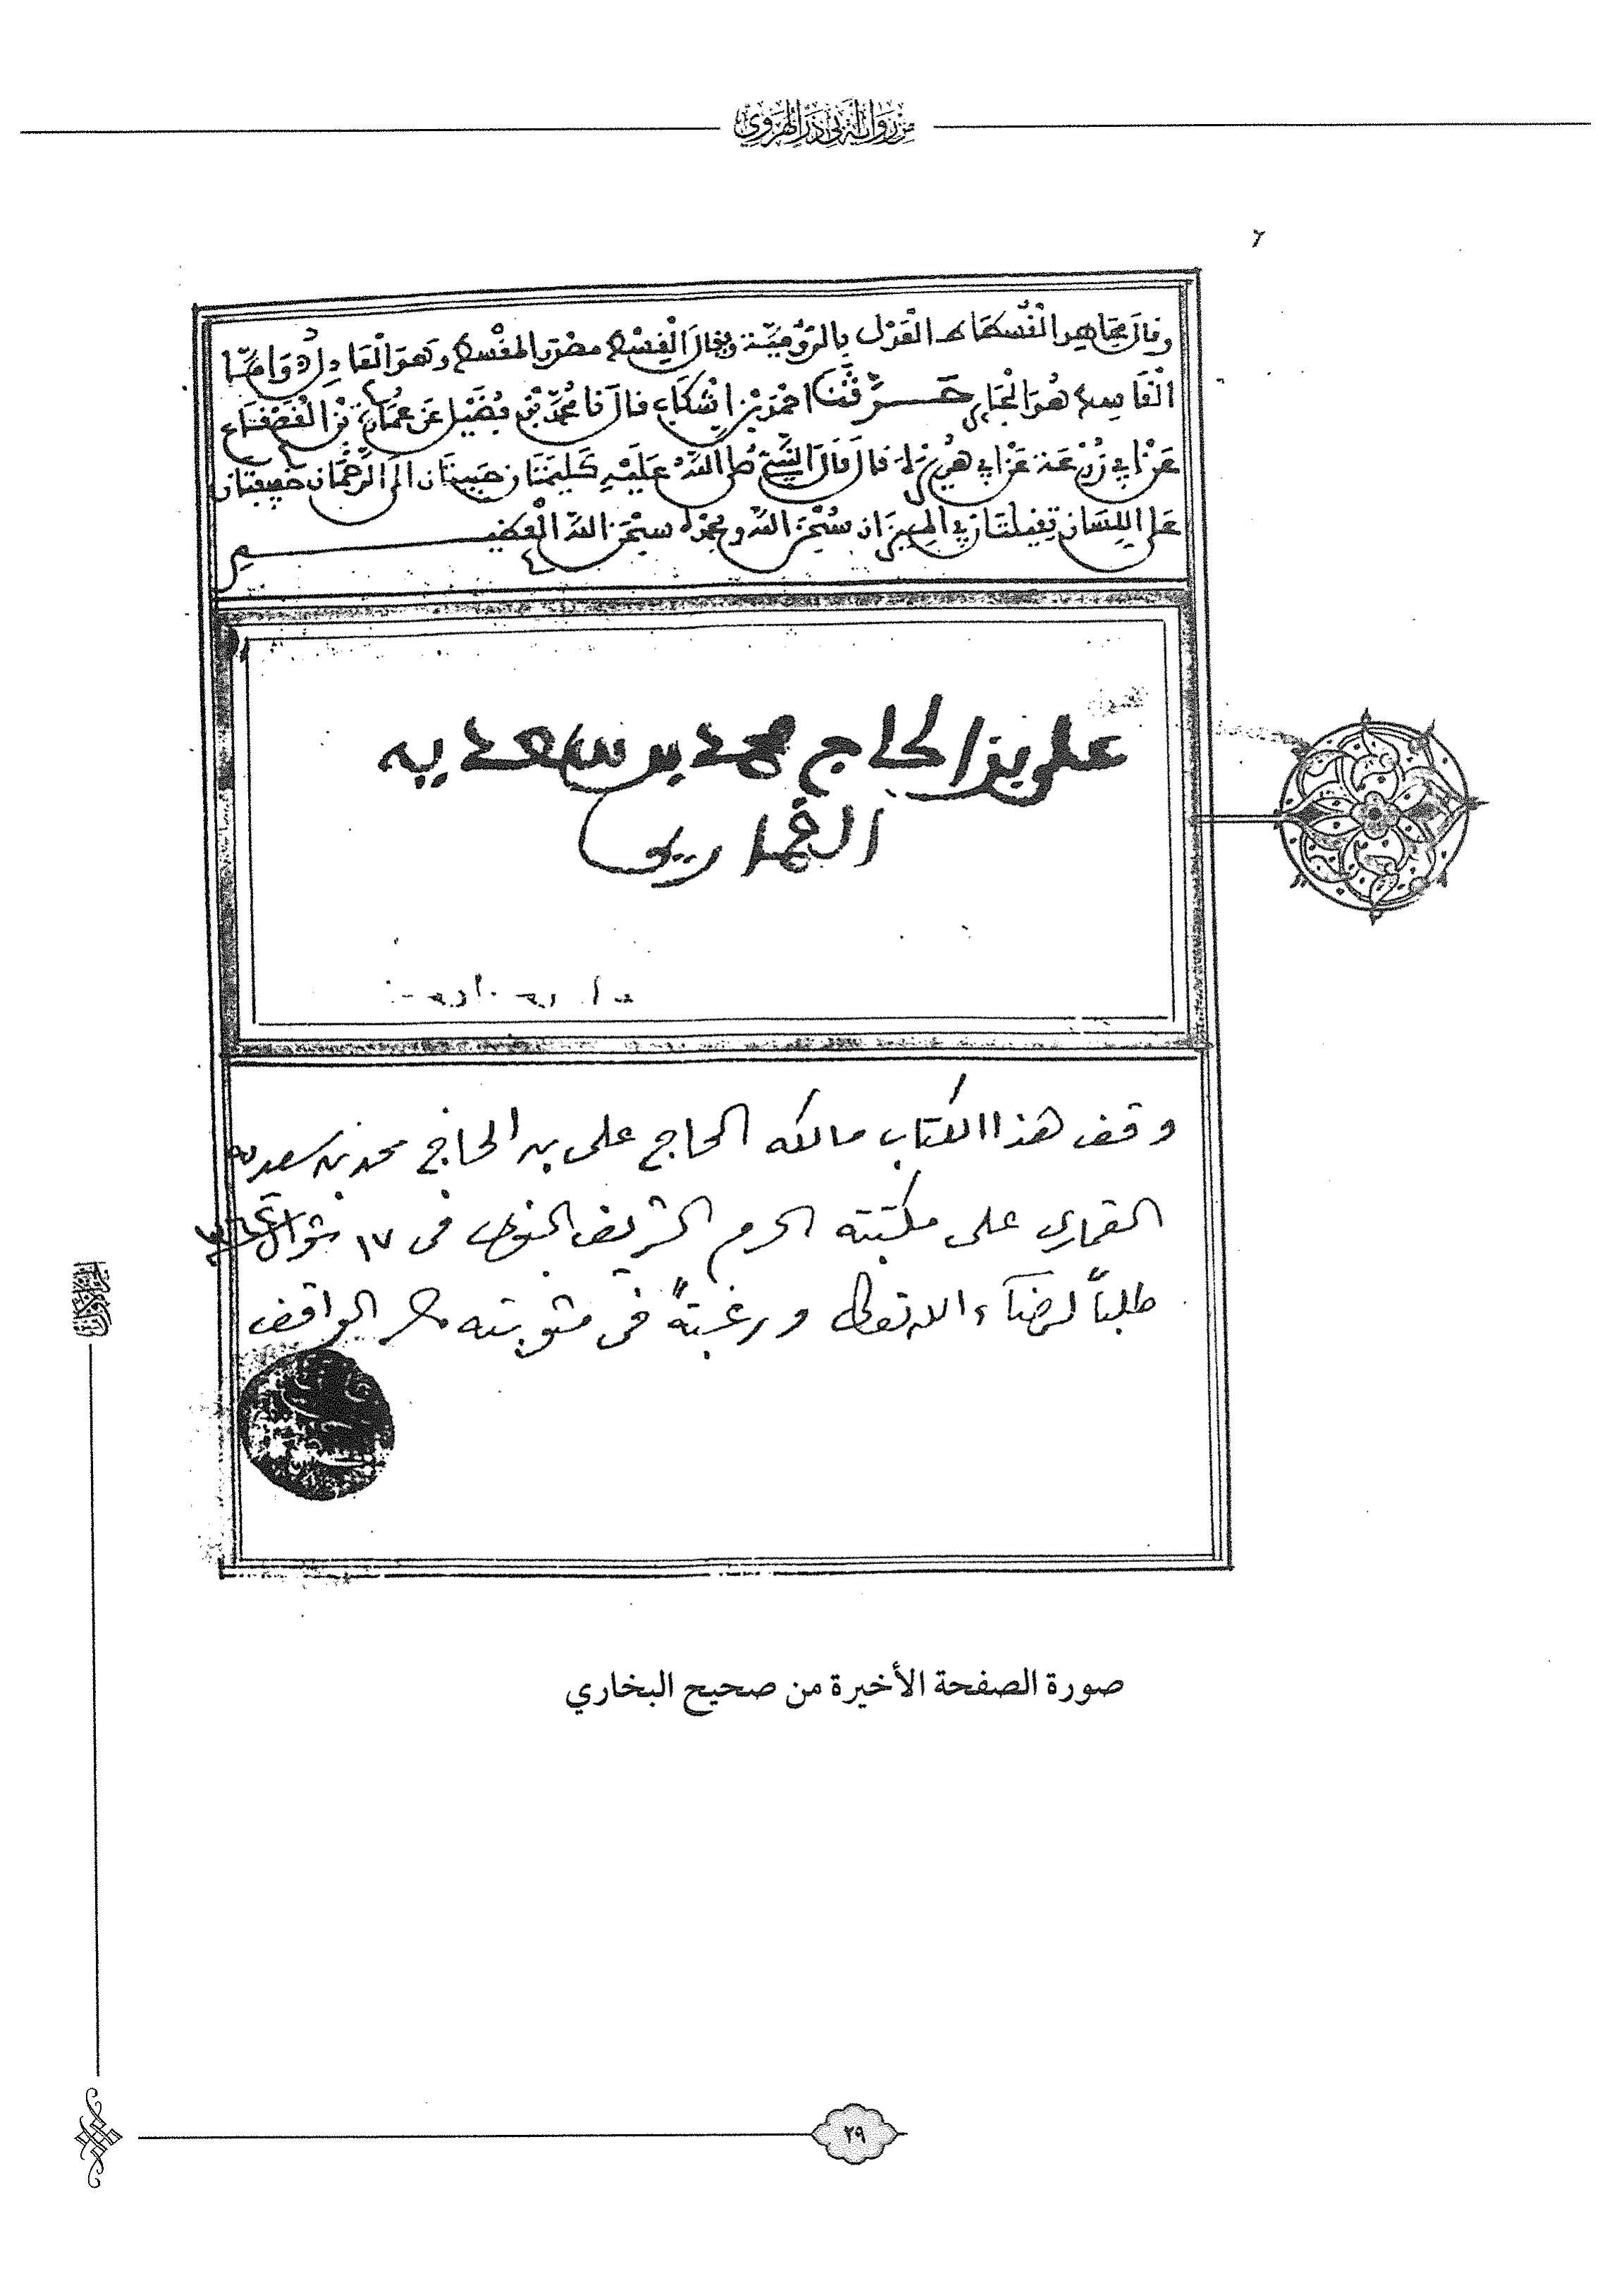 من رواية أبي ذر الهروي
وقال مجاهد القسطاط العدل بالرومية ويقال القسط مصدر المقسط وهو العادل واما
القاسط هو الجاير حدثنا احمد بن اشكاب قال نا محمد بن فضيل عن عمارة بن القعقاع
عن ابي زرعة عن ابي هريرة قال قال النبي صلى الله عليه كلمتان حبيبتان الى الرحمان خفيفتان
على اللسان ثقيلتان في الميزان سبحن الله وبحمده سبحن الله العظيم
علي بن الحاج محمد بن سعديه
القماري
وقف هذا الكتاب مالكه الحاج على بن الحاج محمد بن سعديه
القماري على مكتبة الحرم الشريف النبوي في ١٧ شوال
طلباً لرضاء الله تعالى ورغبةً في مثوبته الواقف
صورة الصفحة الأخيرة من صحيح البخاري
٢٩